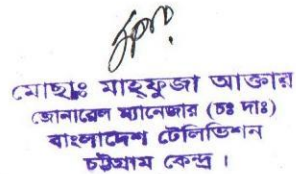 মোছাঃ মাহ্ফুজা আক্তার
জেনারেল ম্যানেজার (চঃ দাঃ)
বাংলাদেশ টেলিভিশন
চট্টগ্রাম কেন্দ্র ।